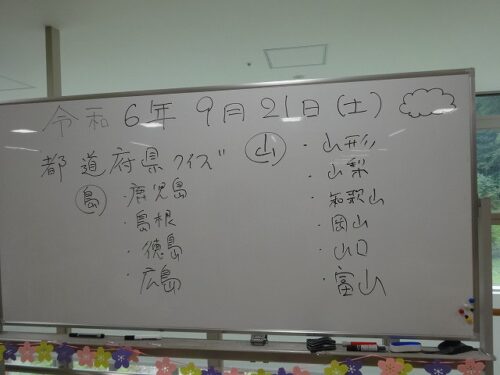 令和 6年 9月21日(土)
都道府県クイズ
島
・鹿児島
・島根
・徳島
・広島
山
・山形
・山梨
・和歌山
・岡山
・山口
・富山